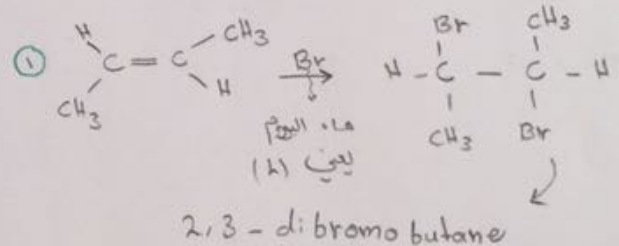 ①
H CH₃ Br CH₃
C = C Br H - C - C - H
CH₃ H CH₃ Br
ماء البروم
يعني (L)
2,3 - dibromobutane